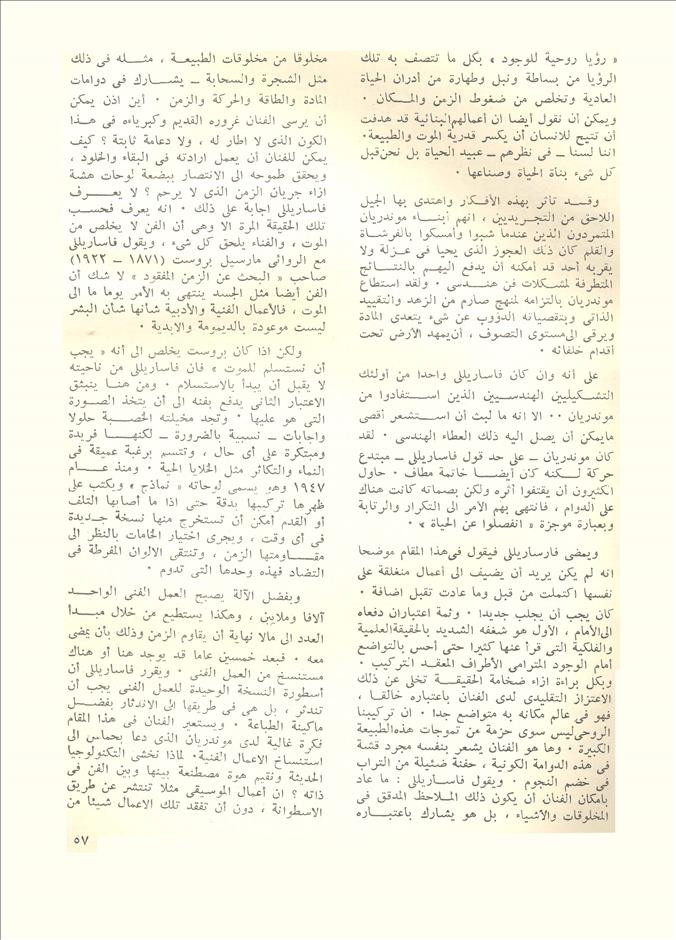 « رؤيا روحية للوجود » بكل ما تتصف به تلك
الرؤيا من بساطة ونبل وطهارة من أدران الحياة
العادية وتخلص من ضغوط الزمن والمــكان ٠
ويمكن أن نقول أيضا ان أعمالهم البنائية قد هدفت
أن تتيح للانسان أن يكسر قدرية الموت والطبيعة٠
اننا لسنا ــ فى نظرهم ــ عبيد الحياة بل نحن قبل
كل شىء بناة الحياة وصناعها ٠
وقــد تأثر بهذه الأفكار واهتدى بها الجيل
اللاحق من التجريديين ، انهم أبنــاء موندريان
المتمردون الذين عندما شبوا وأمسكوا بالفرشاة
والقلم كان ذلك العجوز الذى يحيا فى عـزلة ولا
يقربه أحد قد أمكنه أن يدفع اليهــم بالنتــائج
المتطرفة لمشكلات فن هنــدسى ٠ ولقد استطاع
موندريان بالتزامه لمنهج صارم من الزهد والتقييد
الذاتى وبتقصياته الدؤوب عن شىء يتعدى المادة
ويرقى الى مستوى التصوف ، أن يمهد الأرض تحت
أقدام خلفائه ٠
على أنه وان كان فاساريللى واحدا من أولئك
التشـكيليين الهندسـيين الذين اسـتفادوا من
موندريان ٠٠ الا انه ما لبث أن اسـتشعر أقصى
مايمكن أن يصل اليه ذلك العطاء الهندسى ٠ لقد
كان موندريان ــ على حد قول فاساريللى ــ مبتدع
حركة لـكنه كان أيضــا خاتمة مطاف ٠ حاول
الكثيرون أن يقتفوا أثره ولكن بصماته كانت هناك
على الدوام ، فانتهى بهم الأمر الى التكرار والرتابة
وبعبارة موجزة « انفصلوا عن الحياة » ٠
ويمضى فارساريللى فيقول فى هذا المقام موضحا
انه لم يكن يريد أن يضيف الى أعمال منغلقة على
نفسها اكتملت من قبل وما عادت تقبل اضافة ٠
كان يجب أن يجلب جديدا ٠ وثمة اعتباران دفعاه
الى الأمام ، الأول هو شغفه الشديد بالحقيقة العلمية
والفلكية التى قرأ عنها كثيرا حتى أحس بالتواضع
أمام الوجود المترامى الأطراف المعقـد التركيب ٠
وبكل براءة ازاء ضخامة الحقيقــة تخلى عن ذلك
الاعتزاز التقليدى لدى الفنان باعتباره خالقــا ،
فهو فى عالم مكانه به متواضع جدا ٠ ان تركيبنا
الروحى ليس سوى حزمة من تموجات هذه الطبيعة
الكبيرة ٠ وها هو الفنان يشعر بنفسه مجرد قشة
فى هذه الدوامة الكونية ، حفنة ضئيلة من التراب
فى خضم النجوم ٠ ويقول فاساريللى : ما عاد
بامكان الفنان أن يكون ذلك المـلاحظ المدقق فى
المخلوقات والأشياء ، بل هو يشارك باعتبــاره
مخلوقا من مخلوقات الطبيعــة ، مثـله فى ذلك
مثل الشجرة والسحابة ــ يشـارك فى دوامات
المادة والطاقة والحركة والزمن ٠ أين اذن يمكن
أن يرسى الفنان غروره القديم وكبرياءه فى هـذا
الكون الذى لا اطار له ، ولا دعامة ثابتة ؟ كيف
يمكن للفنان أن يعمل ارادته فى البقاء والخلود ،
ويحقق طموحه الى الانتصار ببضعة لوحات هشة
ازاء جريان الزمن الذى لا يرحم ؟ لا يعــرف
فاساريللى اجابة على ذلك ٠ انه يعرف فحسـب
تلك الحقيقة المرة الا وهى أن الفن لا يخلص من
الموت ، والفناء يلحق كل شىء ، ويقول فاساريللى
مع الروائى مارسيل بروست (١٨٧١ ــ ١٩٢٢)
صاحب « البحث عن الزمن المفقود » لا شك أن
الفن أيضا مثل الجسد ينتهى به الأمر يوما ما الى
الموت ، فالأعمال الفنية والأدبية شأنها شأن البشر
ليست موعودة بالديمومة والابدية ٠
ولكن اذا كان بروست يخلص الى أنه « يجب
أن نستسلم للموت » فان فاساريللى من ناحيته
لا يقبل أن يبدأ بالاستسلام ٠ ومن هنــا ينبثق
الاعتبار الثانى يدفع بفنه الى أن يتخذ الصــورة
التى هو عليها ٠ وتجد مخيلته الخصـبة حلولا
واجابات ــ نسبية بالضرورة ــ لكنهــا فريدة
ومبتكرة على أى حال ، وتتسم برغبة عميقة فى
النماء والتكاثر مثل الخلايا الحية ٠ ومنذ عــام
١٩٤٧ وهو يسمى لوحاته « نماذج » ويكتب على
ظهرها تركيبها بدقة حتى اذا ما أصابها التلف
أو القدم أمكن أن تستخرج منها نسخة جـديدة
فى أى وقت ، ويجرى اختيار الخامات بالنظر الى
مقــاومتها الزمن ، وتنتقى الالوان المفرطة فى
التضاد فهذه وحدها التى تدوم ٠
وبفضل الآلة يصبح العمل الفنى الواحــد
آلافا وملايين ، وهكذا يستطيع من خلال مبــدأ
العدد الى مالا نهاية أن يقاوم الزمن وذلك بأن يمضى
معه ٠ فبعد خمسين عاما قد يوجد هنا أو هناك
مستنسخ من العمل الفنى ٠ ويقرر فاساريللى أن
أسطورة النسخة الوحيدة للعمل الفنى يجب أن
تندثر ، بل هى فى طريقها الى الاندثار بفضــل
ماكينة الطباعة ٠ ويستعير الفنان فى هذا المقام
فكرة غالية لدى موندريان الذى دعا بحماس الى
استنساخ الاعمال الفنية٠ لماذا نخشى التكنولوجيا
الحديثة ونقيم هوة مصطنعة بينها وبين الفن فى
ذاته ؟ ان أعمال الموسيقى مثلا تنتشر عن طريق
الاسطوانة ، دون أن تفقد تلك الاعمال شيئا من
٥٧